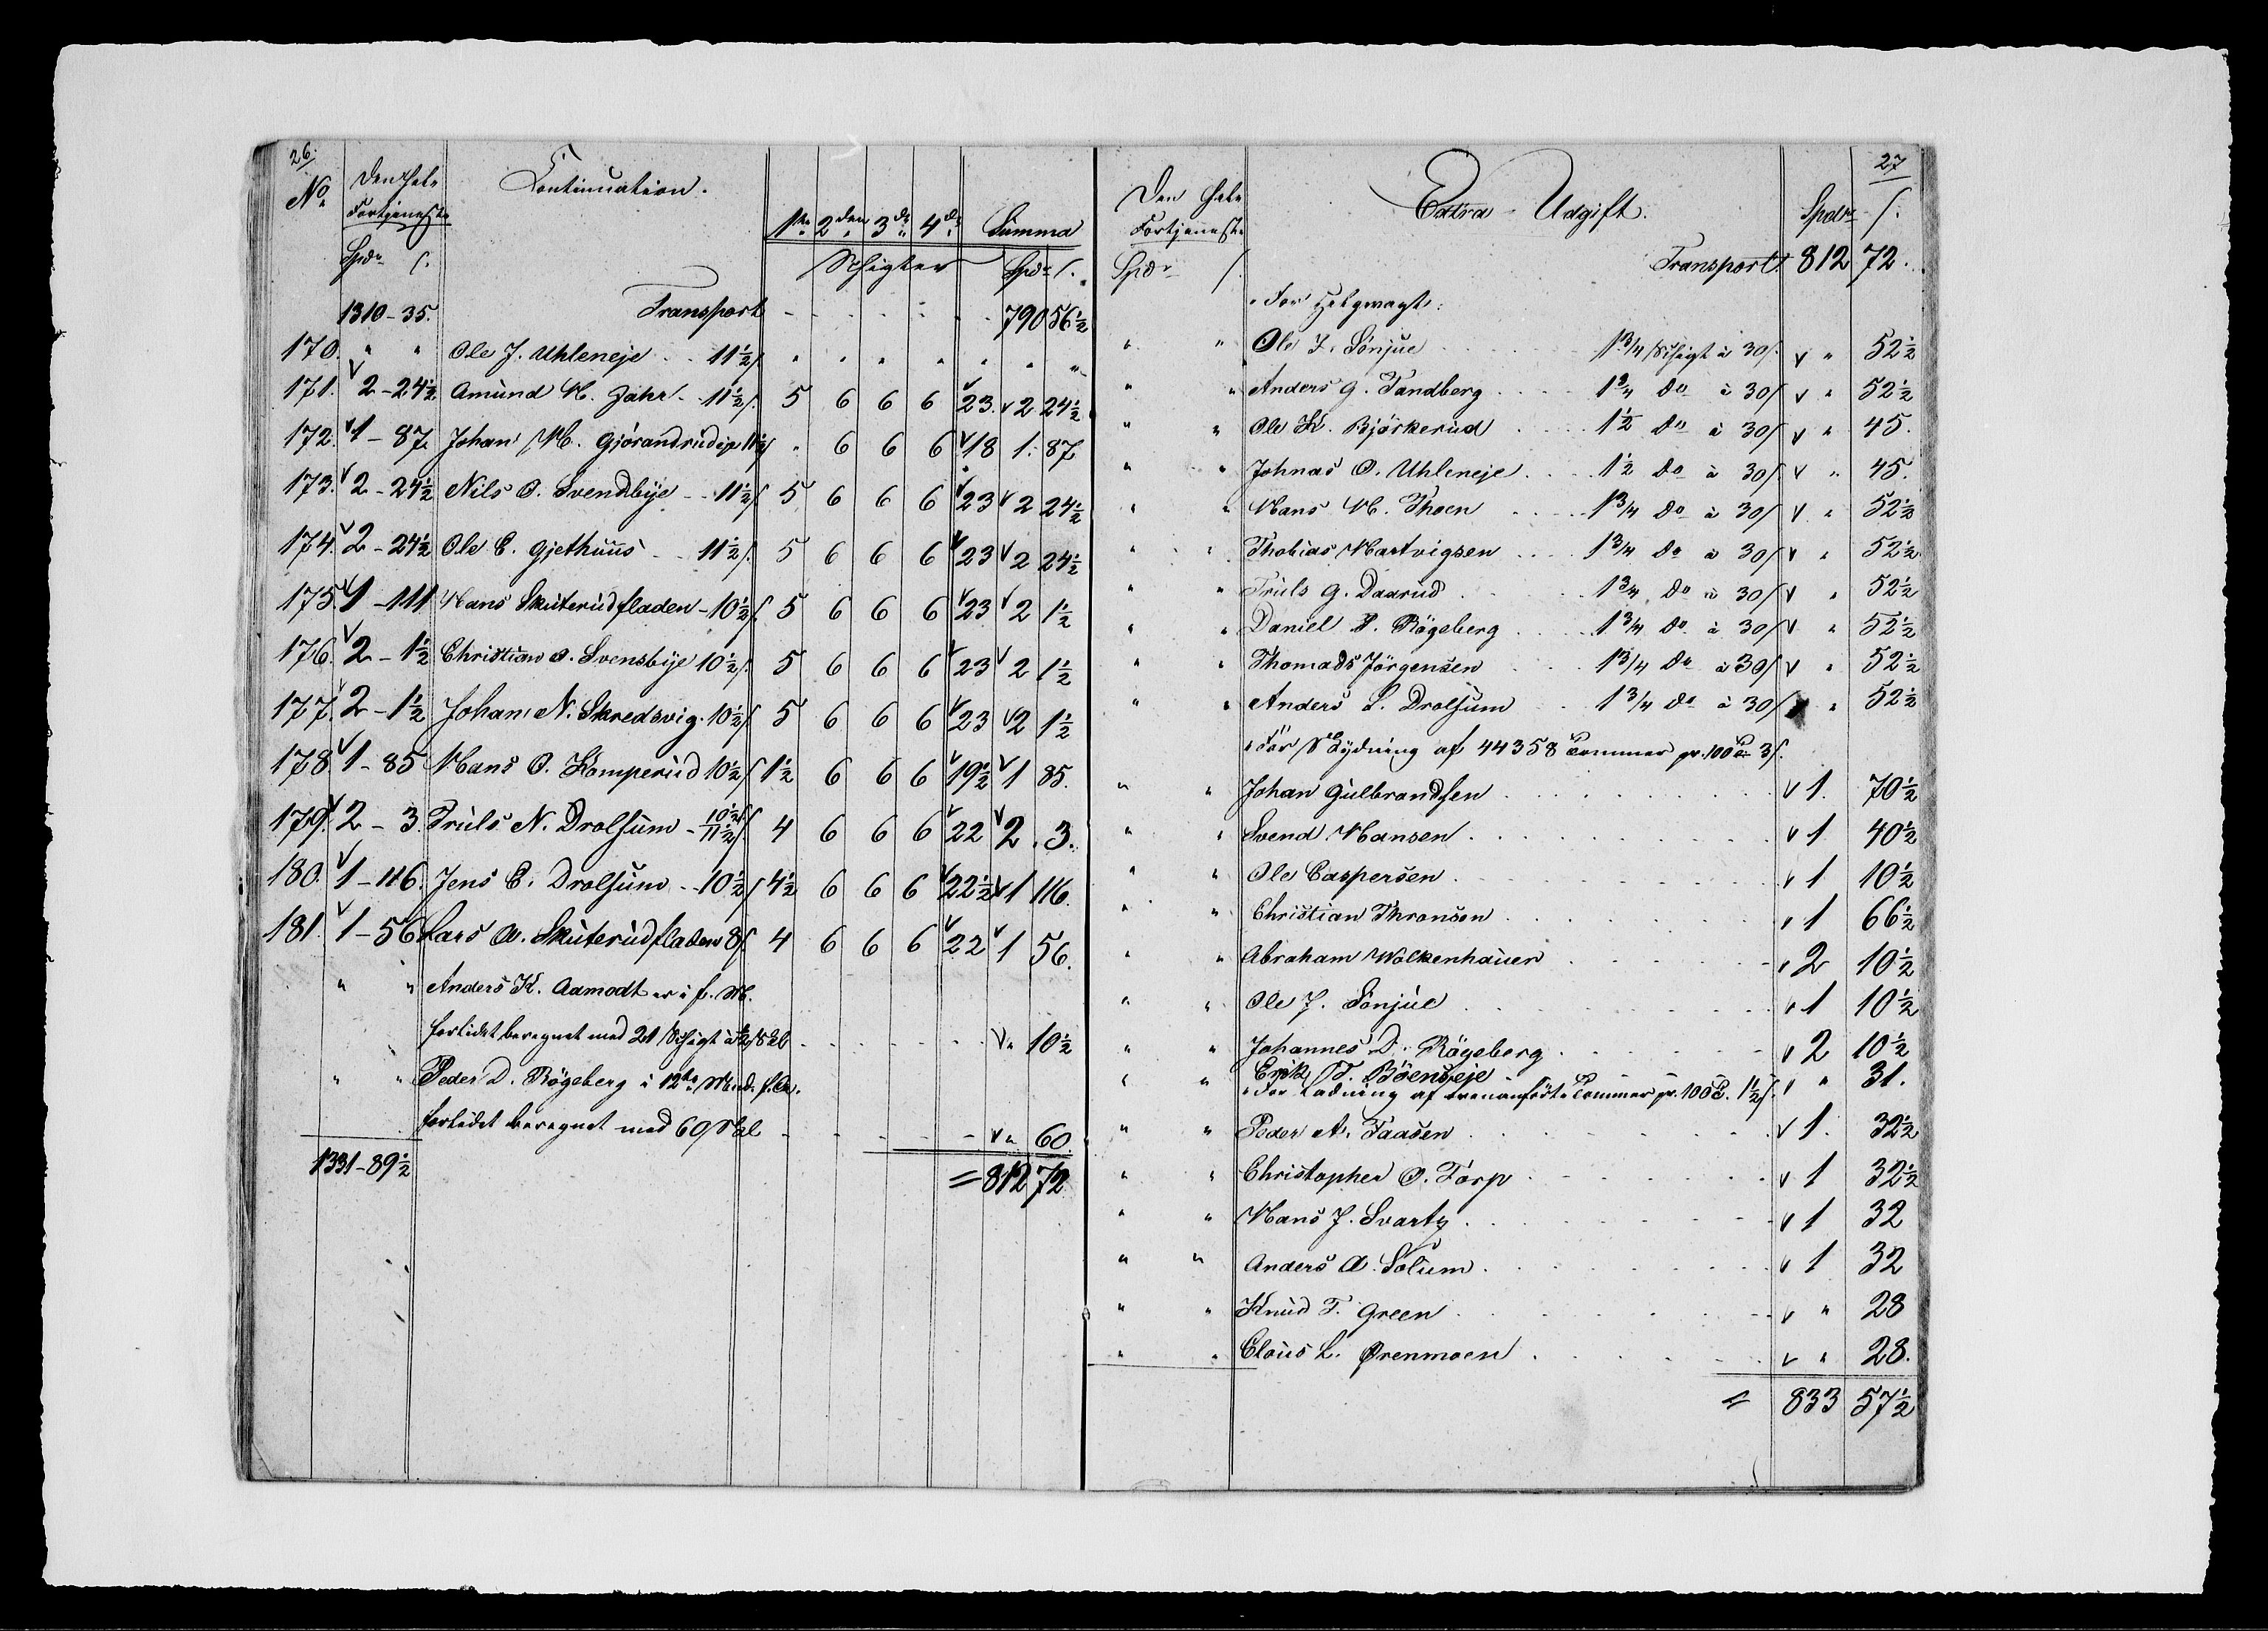 26.
No Den hele Fortjeneste Continuation.
1ste 2den 3de 4de Summa
Spdr ſ. Schigter Spdr ſ.
1310-35. Transport - - - - - - 790 56 1/2
170. " " Ole J. Uhleneje - - 11 1/2 ſ. " " " " " " "
171. 2-24 1/2 Amund H. Jahr - 11 1/2 ſ. 5 6 6 6 23. 2 24 1/2
172. 1-87 Johan H. Gjörandrudeje 11 1/2 ſ " 6 6 6 18 1. 87
173. 2-24 1/2 Nils O. Svendbÿe - - 11 1/2 ſ 5 6 6 6 23 2 24 1/2
174. 2-24 1/2 Ole E. Gjethuus - - 11 1/2 ſ. 5 6 6 6 23 2 24 1/2
175. 1-111 Hans Skuterudfladen - 10 1/2 ſ. 5 6 6 6 23 2 1 1/2
176. 2-1 1/2 Christian O. Svensbÿe 10 1/2 ſ. 5 6 6 6 23 2 1 1/2
177. 2-1 1/2 Johan N. Skredsvig. 10 1/2 ſ. 5 6 6 6 23 2 1 1/2
178. 1-85 Hans O. Komperud 10 1/2 ſ 1 1/2 6 6 6 19 1/2 1 85.
179. 2-3. Truls N. Drolsum - 10 1/2 ſ 11 1/2 ſ. 4 6 6 6 22 2. 3.
180. 1-116. Jens E. Drolsum - - 10 1/2 ſ 4 1/2 6 6 6 22 1/2 1 116.
181. 1-56 Lars A. Skuterudfladen 8 ſ. 4 6 6 6 22 1 56.
" " Anders K. Aamodt er i f. M.
forlidet beregnet med 21 Schigt à 1/2 Skl - - - - - - " 10 1/2
" " Peder D. Rögeberg i 12te Maned f. A.
forlidet beregnet med 60 Skl - - - - - " 60.
1331-89 1/2 = 812 72
27
Den hele Fortjeneste Extra Udgift. Spdr ſ.
Spdr ſ. Transport. 812 72.
" For Helgevagt:
" " Ole J. Sönjue 1 3/4 Schigt à 30 ſ. " 52 1/2
" " Anders G. Tandberg 1 3/4 do à 30 ſ " 52 1/2
" " Ole K. Björkerud 1 1/2 do à 30 ſ " 45.
" " Johnas O. Uhleneje 1 1/2 do à 30 ſ. " 45.
" " Hans H. Thoen 1 3/4 do à 30 ſ " 52 1/2
" " Thobias Hartvigsen 1 3/4 do à 30 ſ " 52 1/2
" " Truls G. Daarud 1 3/4 do à 30 ſ " 52 1/2
" " Daniel Rögeberg 1 3/4 do à 30 ſ " 52 1/2
" " Thomads Jörgensen 1 3/4 do à 30 ſ " 52 1/2
" " Anders L. Drolsum 1 3/4 do à 30 ſ " 52 1/2
" For af 44358 Tommer pr. 100 3 ſ.
" " Johan Gulbrandsen 1. 70 1/2
" " Svend Hansen 1 40 1/2
" " Ole Caspersen 1 10 1/2
" " Christian Thronsen 1 66 1/2
" " Abraham Wolkenhauer 2 10 1/2
" " Ole J. Sönjue 1 10 1/2
" " Johannes D. Rögeberg 2 10 1/2
" " Erik T. Böenseje " 31.
" For Ladning af ovenanförte Tommer pr. 100 1 1/2 ſ.
" " Peder A. Faasen 1. 32 1/2
" " Christopher O. Torp 1 32 1/2
" " Hans J. Svartz 1 32
" " Anders A. Solum 1 32
" " Knud T. Green " 28
" " Claus L. Ørenmoen " 28.
= 833 57 1/2